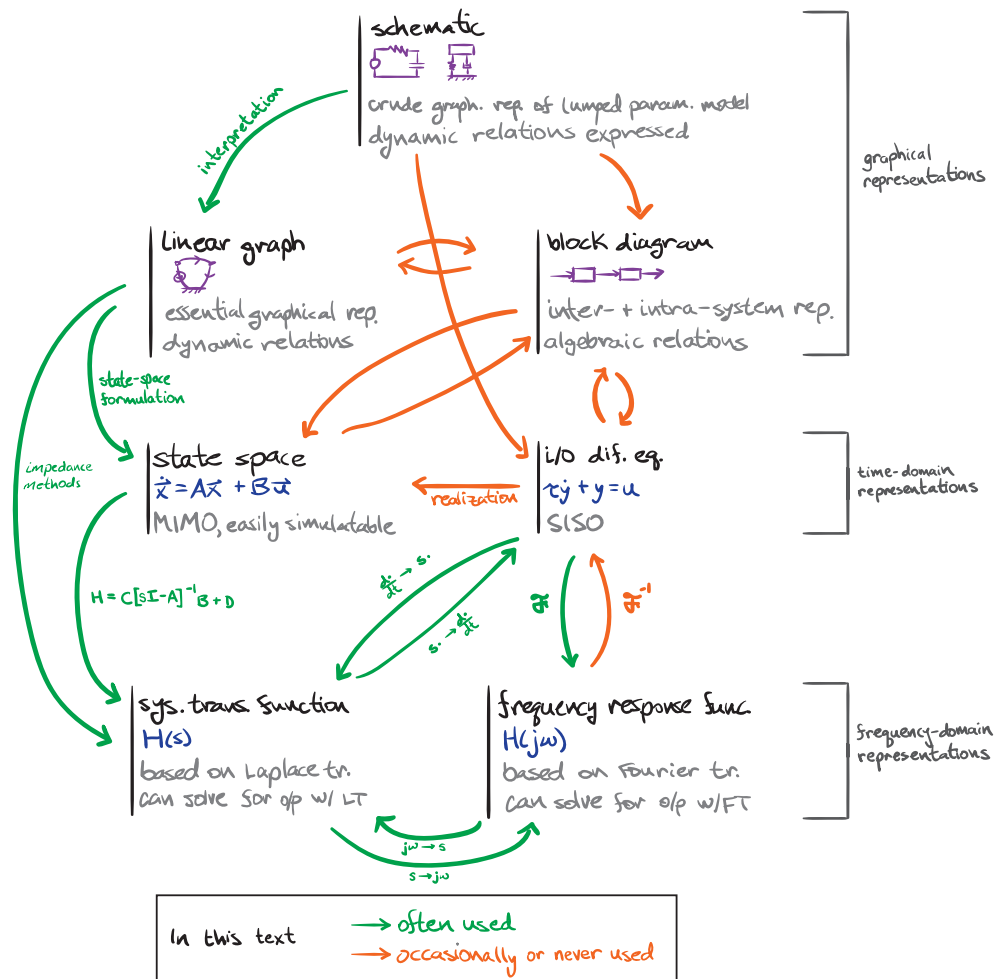 schematic
crude graph. rep. of lumped param. model
dynamic relations expressed
graphical
representations
interpretation
linear graph
essential graphical rep.
dynamic relations
block diagram
inter- + intra-system rep.
algebraic relations
state-space
formulation
impedance
methods
state space
ẋ⃗ = Ax⃗ + Bu⃗
MIMO, easily simulatable
realization
i/o dif. eq.
τẏ + y = u
SISO
time-domain
representations
H = C[sI-A]⁻¹B+D
d·/dt → s·
s· → d·/dt
ℱ
ℱ⁻¹
sys. trans. function
H(s)
based on Laplace tr.
can solve for o/p w/ LT
frequency response func.
H(jω)
based on Fourier tr.
can solve for o/p w/FT
frequency-domain
representations
jω → s
s → jω
In this text
→ often used
→ occasionally or never used